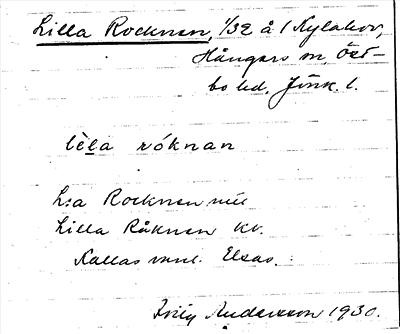 Lilla Rocknen, 1/32 å 1 Nylakov,
Hångers sn, Öst-
bo hd, Jönk. l.
lèla róknan
L:a Rocknen
Lilla Råknen kv.
Kallas vanl. Elsas.
Andersson 1930.